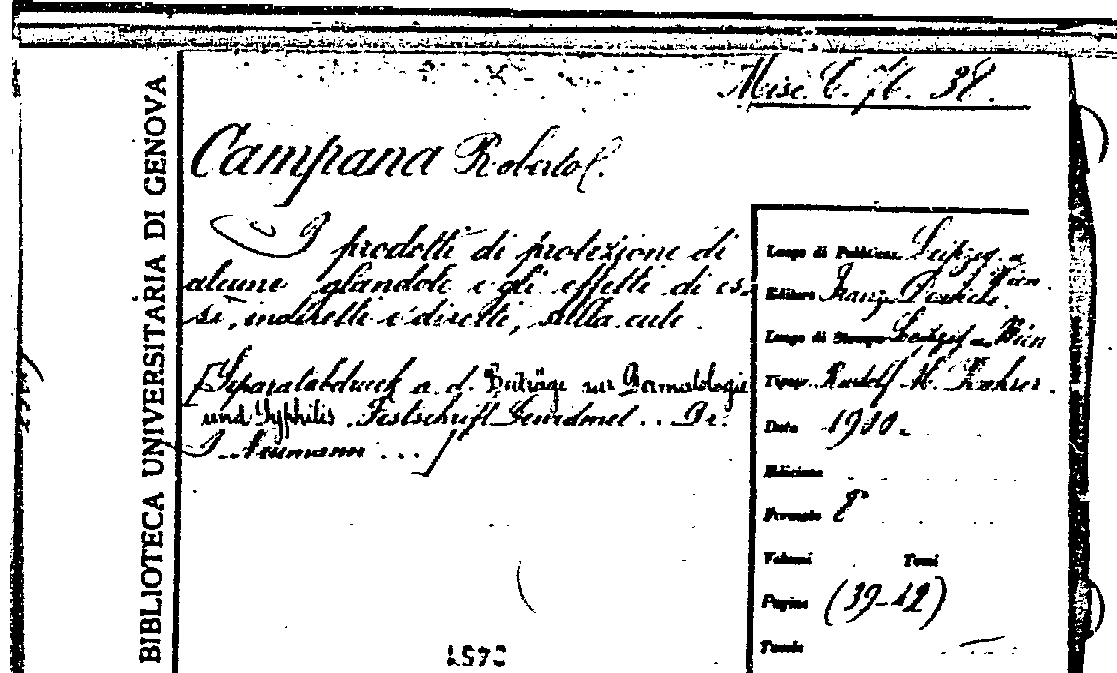 Misc. C. 76. 38.
Campana Roberto
I prodotti di protezione di
alcune glandole e gli effetti di es-
si, indiretti e diretti, sulla cute.
[Separatabdruck a. d. Beiträge zur Dermatologie
und Syphilis. Festschrift Gewidmet .. Dr.
I. Neumann ...]
Luogo di Pubblicaz. Leipzig u. Wien
Editore Franz Deuticke.
Luogo di Stampa Leipzig u. Wien
Tipogr. Rudolf M. Rohrer.
Data 1900.
Edizione
Formato 8°
Volumi Tomi
Pagine (39-42)
Tavole
BIBLIOTECA UNIVERSITARIA DI GENOVA